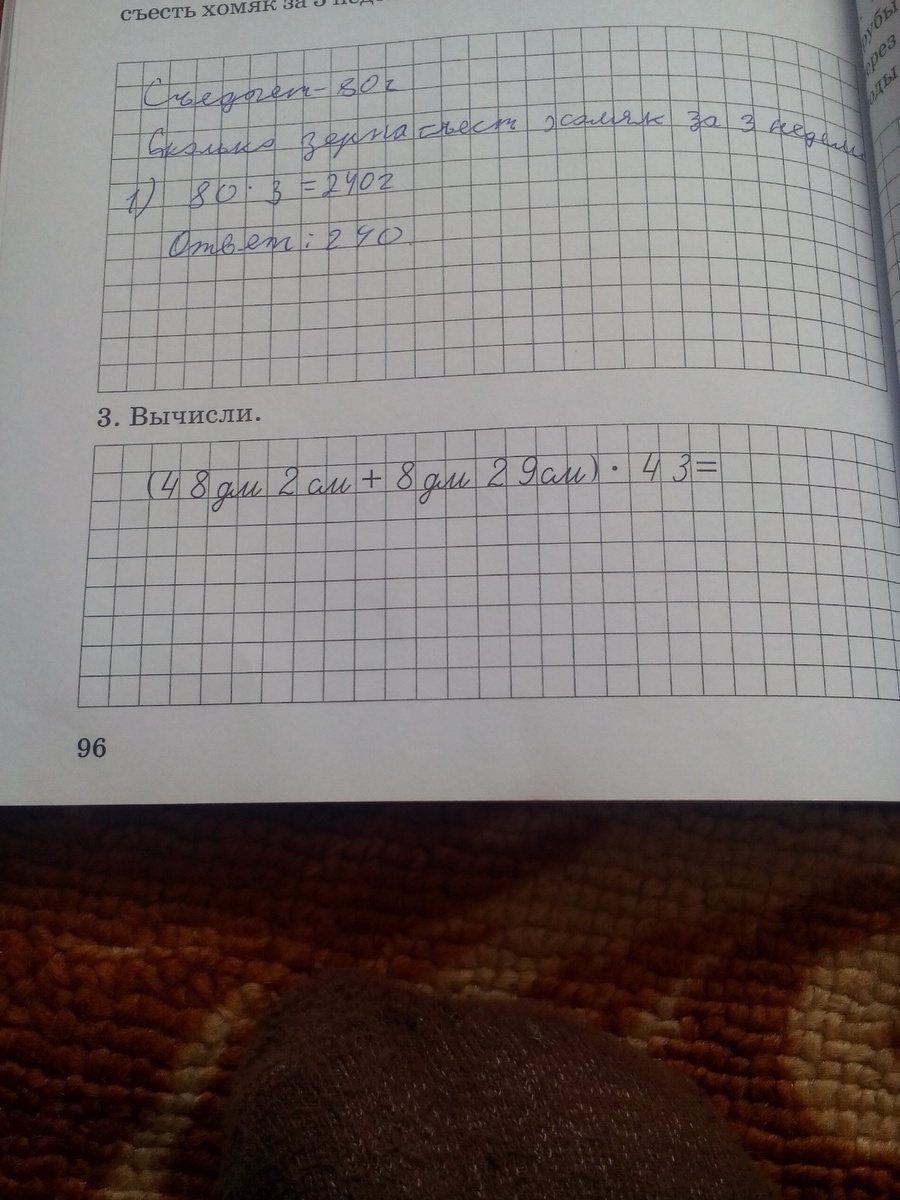 съесть хомяк за 3
Съедает - 80г
Сколько зерна съест хомяк за 3 недели
1) 80 · 3 = 240г
Ответ: 240
3. Вычисли.
(48дм 2см + 8дм 29см) · 43=
96